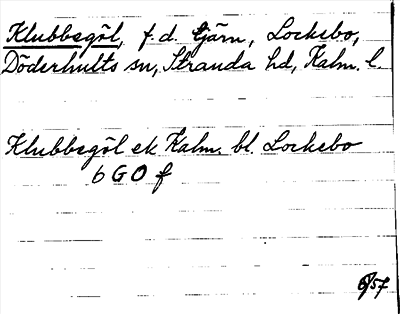 Klubbegöl, f.d. tjärn, Lockebo,
Döderhults sn, Stranda hd, Kalm. l.
Klubbegöl ek Kalm. bl. Lockebo
6 G O f
6/57